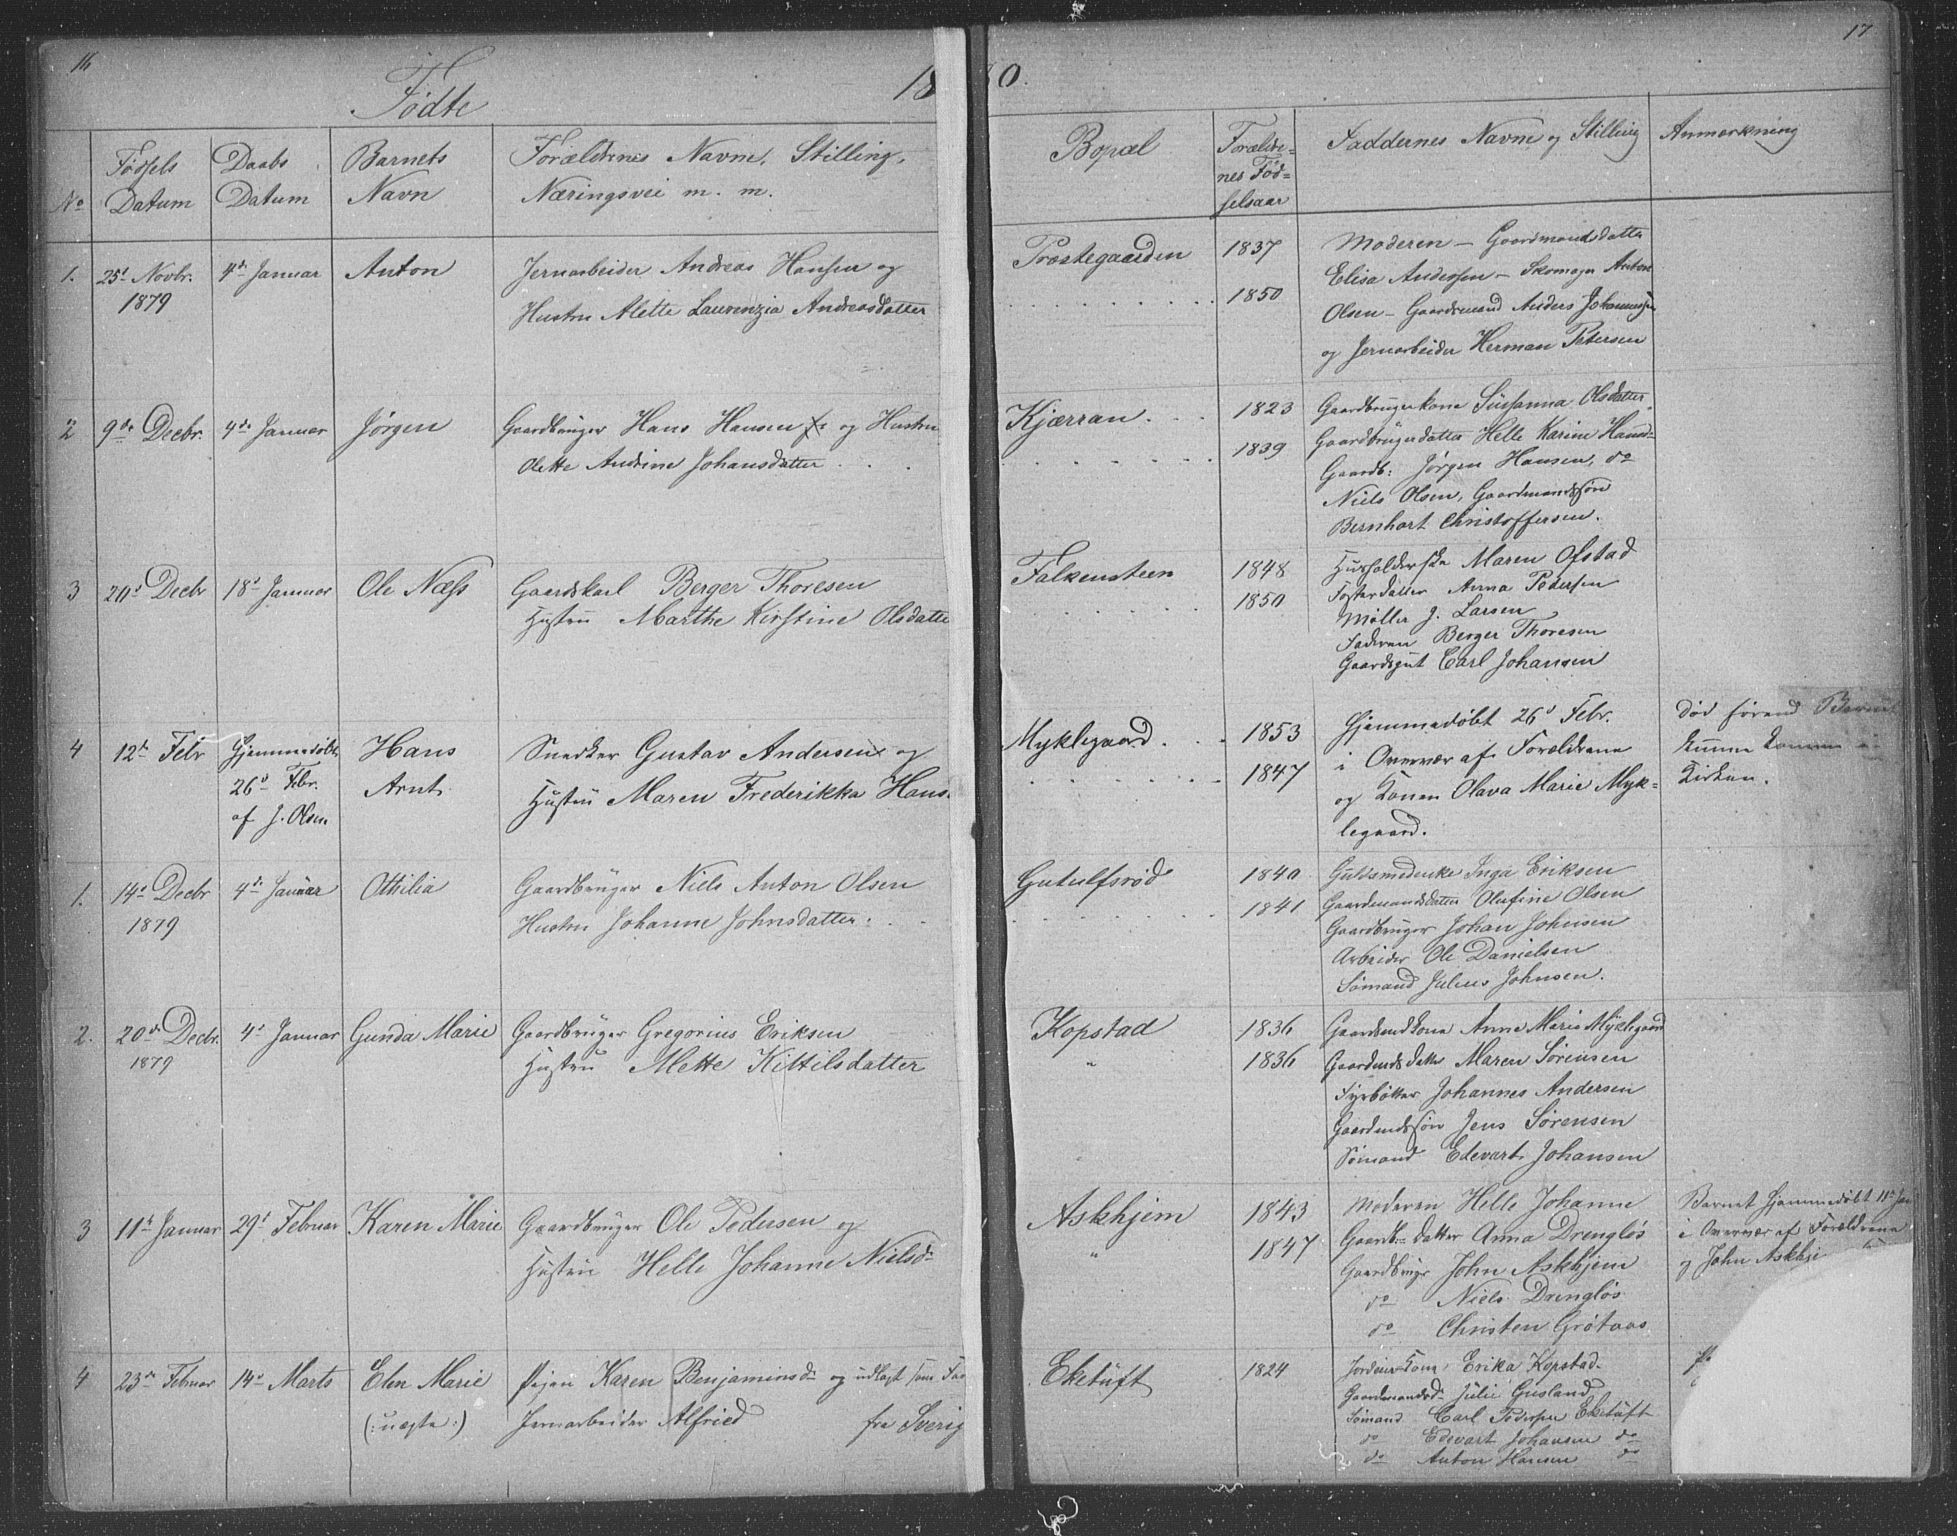 16
17
Fødte
18 80.
No
Fødsels Datum
Daabs Datum
Barnets Navn
Forældrenes Navne, Stilling, Næringsvei m. m.
Bopæl
Forældrenes Fødselsaar
Faddernes Navne og Stilling
Anmærkning
1.
25d Novbr.
1879
4de Januar
Anton
Jernarbeider Andreas Hansen og
Hustru Alette Laurenzia Andreasdatter
Præstegaarden
1837
1850
Moderen – Gaardmandsdatter
Elisa Andersen – Skomager Anton
Olsen – Gaardmand Anders Johannessen
og Jernarbeider Herman Petersen
2
9de Decbr.
4de Januar
Jørgen
Gaardbruger Hans Hansen og Hustru
Olette Andrine Johansdatter
Kjærran
1823
1839
Gaardbrugerkone Susanna Olsdatter
Gaardbrugerdatter Helle Karine Hansd:
Gaardb: Jørgen Hansen, do
Niels Olsen, Gaardmandssøn
Bernhart Christoffersen.
3
20d Decbr
18d Januar
Ole Næss
Gaardskarl Berger Thoresen
Hustru Marthe Kirstine Olsdatte
Falkensteen
1848
1850
Husholderske Maren Ofstad
Fosterdatter Anna Pedersen
Møller J. Larsen
Faderen Berger Thoresen
Gaardsgut Carl Johansen
4
12te Febr
Hjemmedøbt
26d Febr.
af J. Olsen
Hans
Arnt
Snedker Gustav Andersen og
Hustru Maren Frederikka Hans
Myklegaard
1853
1847
Hjemmedøbt 26d Febr.
i Overvær af Forældrene
og Konen Olava Marie Myk=
legaard.
Død førend Barnet
kunne komme i
Kirken.
1.
14d Decbr
1879
4de Januar
Othilia
Gaardbruger Niels Anton Olsen
Hustru Johanne Johnsdatter
Gutulfsrød
1840
1841
Guldsmedenke Inga Eriksen
Gaardmandsdatter Olufine Olsen
Gaardbruger Johan Johnsen
Arbeider Ole Danielsen
Sømand Julius Johnsen.
2.
20de Decbr.
1879
4d Januar
Gunda Marie
Gaardbruger Gregorius Eriksen
Hustru Mette Kittilsdatter
Kopstad
"
1836
1836
Gaardmdkone Anne Marie Myklegaard
Gaardmdsdatter Maren Sørensen
Fyrbøtter Johannes Andersen
Gaardmdssøn Jens Sørensen
Sømand Edevart Johansen
3
11te Januar
29d Februar
Karen Marie
Gaardbruger Ole Pedersen og
Hustru Helle Johanne Nielsd:
Askhjem
"
1843
1847
Moderen Helle Johanne
Gaardb: datter Anna Drengløs
Gaardbruger John Askhjem
do Niels Drengløs
do Christen Grøtaas
Barnet hjemmedøbt 11te Jan
i Overvær af Forældrene
og John Askhje
4
23de Februar
14d Marts
Elen Marie
(: uægte :)
Pigen Karen Benjaminsd: og udlagt som Fa
Jernarbeider Alfried fra Sverig
Eketuft
1824
Jordeierkone Erika Kopstad
Gaardmandsd: Julie Gusland
Sømand Carl Pedersen Eketuft
do Edevart Johansen do
do Anton Hansen do